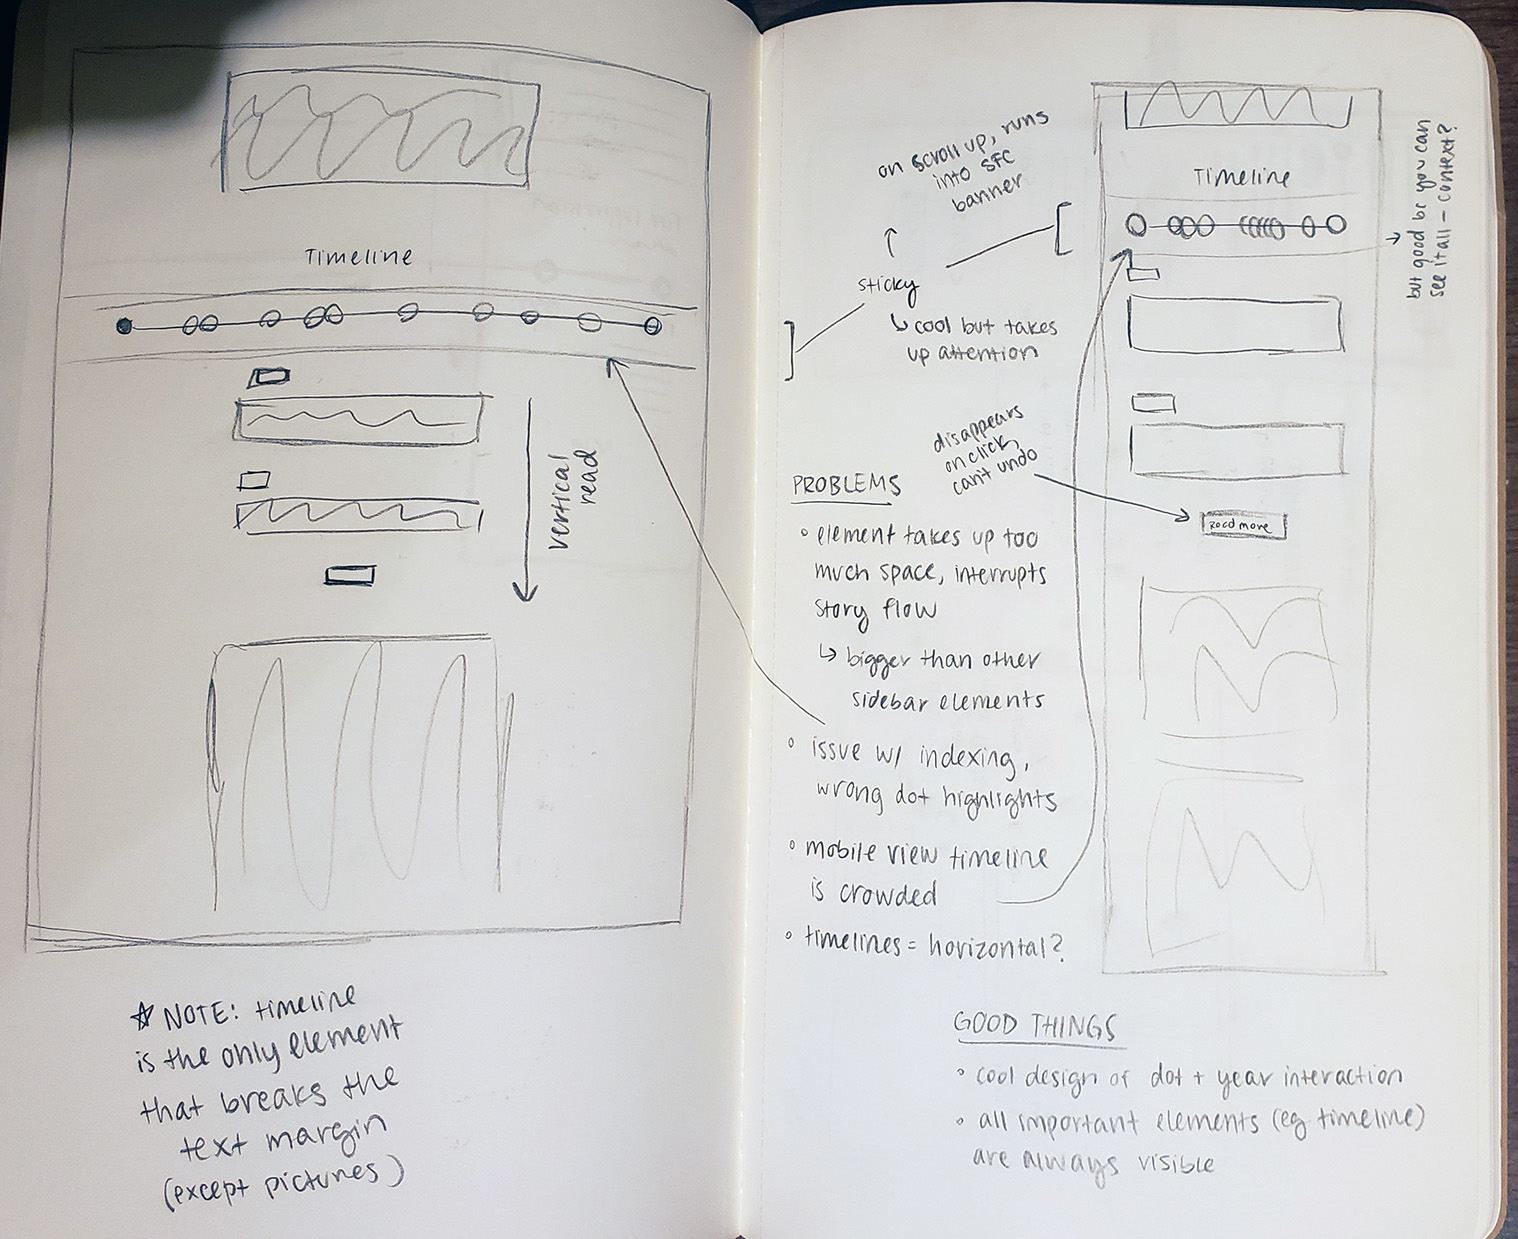 Timeline
vertical
read
☆ NOTE: timeline
is the only element
that breaks the
text margin
(except pictures)
on scroll up, runs
into SFC
banner
↑
sticky
↳ cool but takes
up attention
disappears
on click,
can't undo
PROBLEMS
◦ element takes up too
much space, interrupts
story flow
↳ bigger than other
sidebar elements
◦ issue w/ indexing,
wrong dot highlights
◦ mobile view timeline
is crowded
◦ timelines = horizontal?
Timeline
read more
but good bc you can
see it all - context?
GOOD THINGS
◦ cool design of dot + year interaction
◦ all important elements (eg timeline)
are always visible